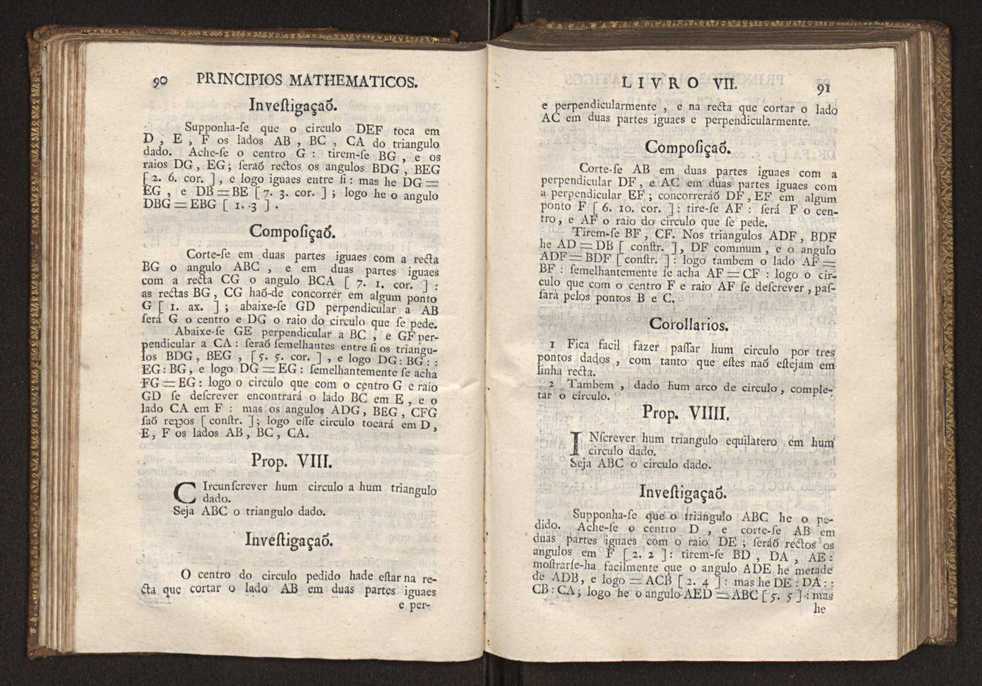 90 PRINCIPIOS MATHEMATICOS.
Inveſtigaçaõ.
Supponha-ſe que o circulo DEF toca em
D , E , F os lados AB , BC , CA do triangulo
dado. Ache-ſe o centro G : tirem-ſe BG , e os
raios DG , EG; ſeraõ rectos os angulos BDG , BEG
[ 2. 6. cor. ] , e logo iguaes entre ſi : mas he DG =
EG , e DB = BE [ 7. 3. cor. ] ; logo he o angulo
DBG = EBG [ 1. 3 ] .
Compoſiçaõ.
Corte-ſe em duas partes iguaes com a recta
BG o angulo ABC , e em duas partes iguaes
com a recta CG o angulo BCA [ 7. 1. cor. ] :
as rectas BG , CG haõ-de concorrer em algum ponto
G [ 1. ax. ] ; abaixe-ſe GD perpendicular a AB
ſerá G o centro e DG o raio do circulo que ſe pede.
Abaixe-ſe GE perpendicular a BC , e GF per-
pendicular a CA : ſeraõ ſemelhantes entre ſi os triangu-
los BDG , BEG , [ 5. 5. cor. ] , e logo DG : BG : :
EG : BG , e logo DG = EG : ſemelhantemente ſe acha
FG = EG : logo o circulo que com o centro G e raio
GD ſe deſcrever encontrará o lado BC em E , e o
lado CA em F : mas os angulos ADG , BEG , CFG
ſaõ rectos [ conſtr. ]; logo eſſe circulo tocará em D ,
E , F os lados AB , BC , CA.
Prop. VIII.
CIrcunſcrever hum circulo a hum triangulo
dado.
Seja ABC o triangulo dado.
Inveſtigaçaõ.
O centro do circulo pedido hade eſtar na re-
cta que cortar o lado AB em duas partes iguaes
e per-
LIVRO VII. 91
e perpendicularmente , e na recta que cortar o lado
AC em duas partes iguaes e perpendicularmente.
Compoſiçaõ.
Corte-ſe AB em duas partes iguaes com a
perpendicular DF , e AC em duas partes iguaes com
a perpendicular EF ; concorreráõ DF , EF em algum
ponto F [ 6. 10. cor. ] : tire-ſe AF : ſerá F o cen-
tro , e AF o raio do circulo que ſe pede.
Tirem-ſe BF , CF. Nos triangulos ADF , BDF
he AD = DB [ conſtr. ], DF commum , e o angulo
ADF = BDF [ conſtr. ] : logo tambem o lado AF =
BF : ſemelhantemente ſe acha AF = CF : logo o cir-
culo que com o centro F e raio AF ſe deſcrever , paſ-
ſará pelos pontos B e C.
Corollarios.
1 Fica facil fazer paſſar hum circulo por tres
pontos dados , com tanto que eſtes naõ eſtejam em
linha recta.
2 Tambem , dado hum arco de circulo , comple-
tar o circulo.
Prop. VIIII.
INſcrever hum triangulo equilatero em hum
circulo dado.
Seja ABC o circulo dado.
Inveſtigaçaõ.
Supponha-ſe que o triangulo ABC he o pe-
dido. Ache-ſe o centro D , e corte-ſe AB em
duas partes iguaes com o raio DE ; ſeráõ rectos os
angulos em F [ 2. 2 ] : tirem-ſe BD , DA , AE :
moſtrarſe-ha facilmente que o angulo ADE he metade
de ADB , e logo = ACB [ 2. 4 ] : mas he DE : DA : :
CB : CA ; logo he o angulo AED = ABC [ 5. 5 ] : mas
he